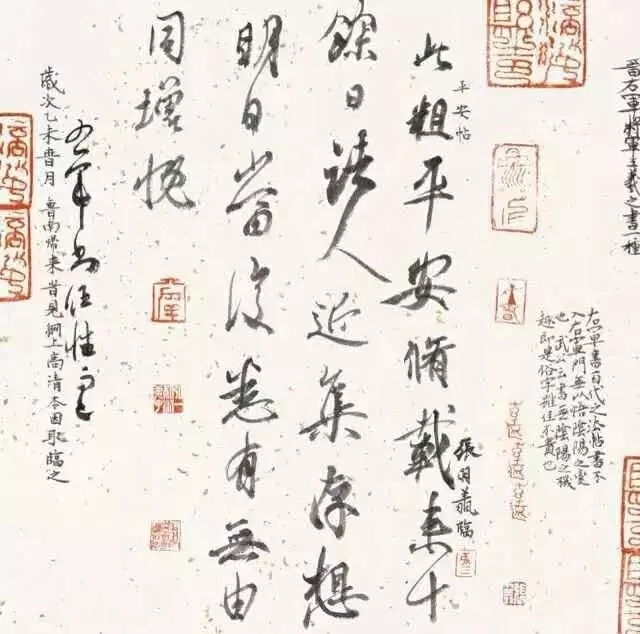 晉右軍將軍王羲之書一種
右軍書百代之法帖書不
入右軍門無以悟陰陽之變
也武公之書無陰陽之機
趣即是俗字雖佳不貴也
平安帖
此粗平安脩載來十
餘日諸人近集存想
明日當復悉有無由
同增慨
右軍書任性
歲次乙未 月魯南歸來昔見網上高清本因取臨之